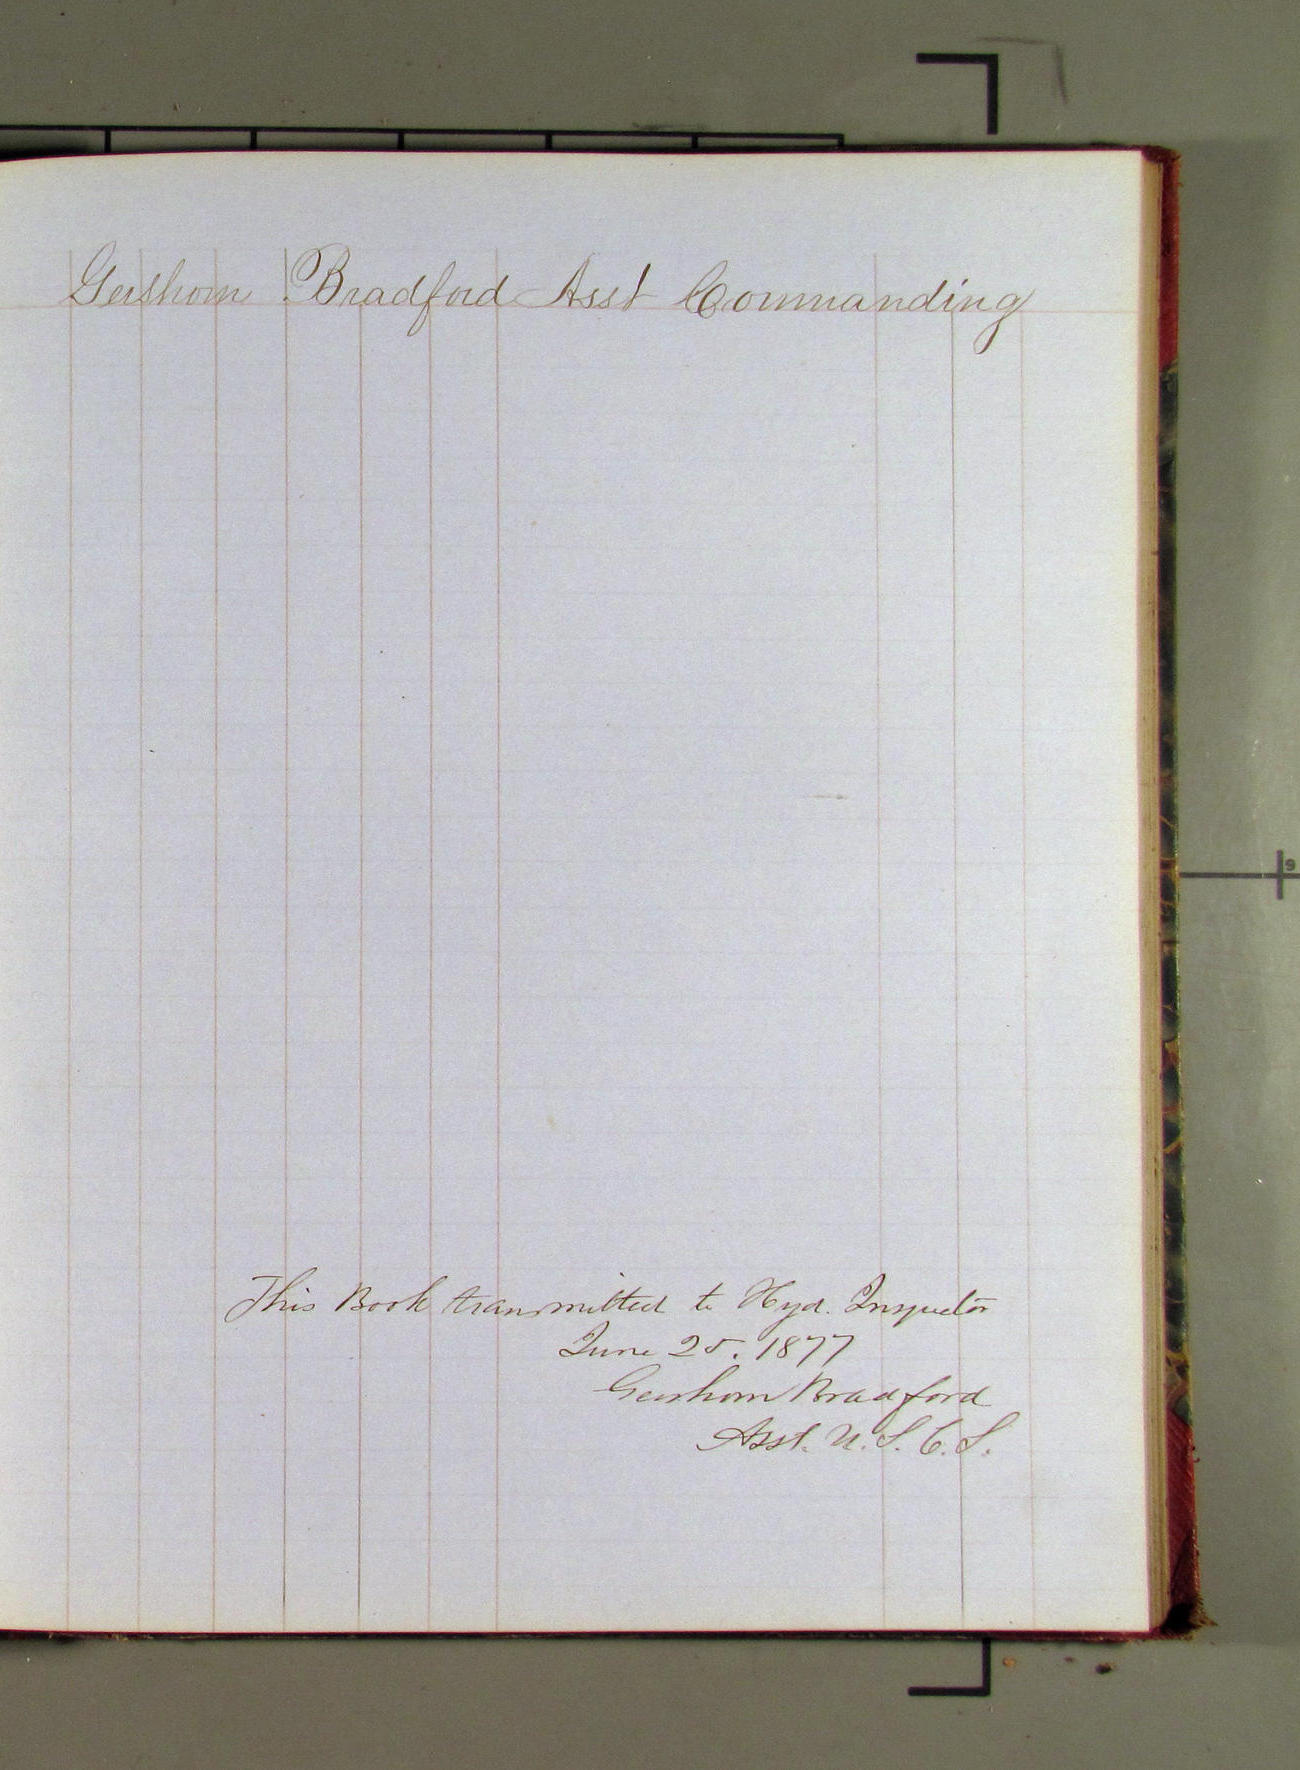 Gershom Bradford Asst Commanding
This Book transmitted to Hyd. Inspector
June 25. 1877
Gershom Bradford
Asst. U. S. C. S.
9